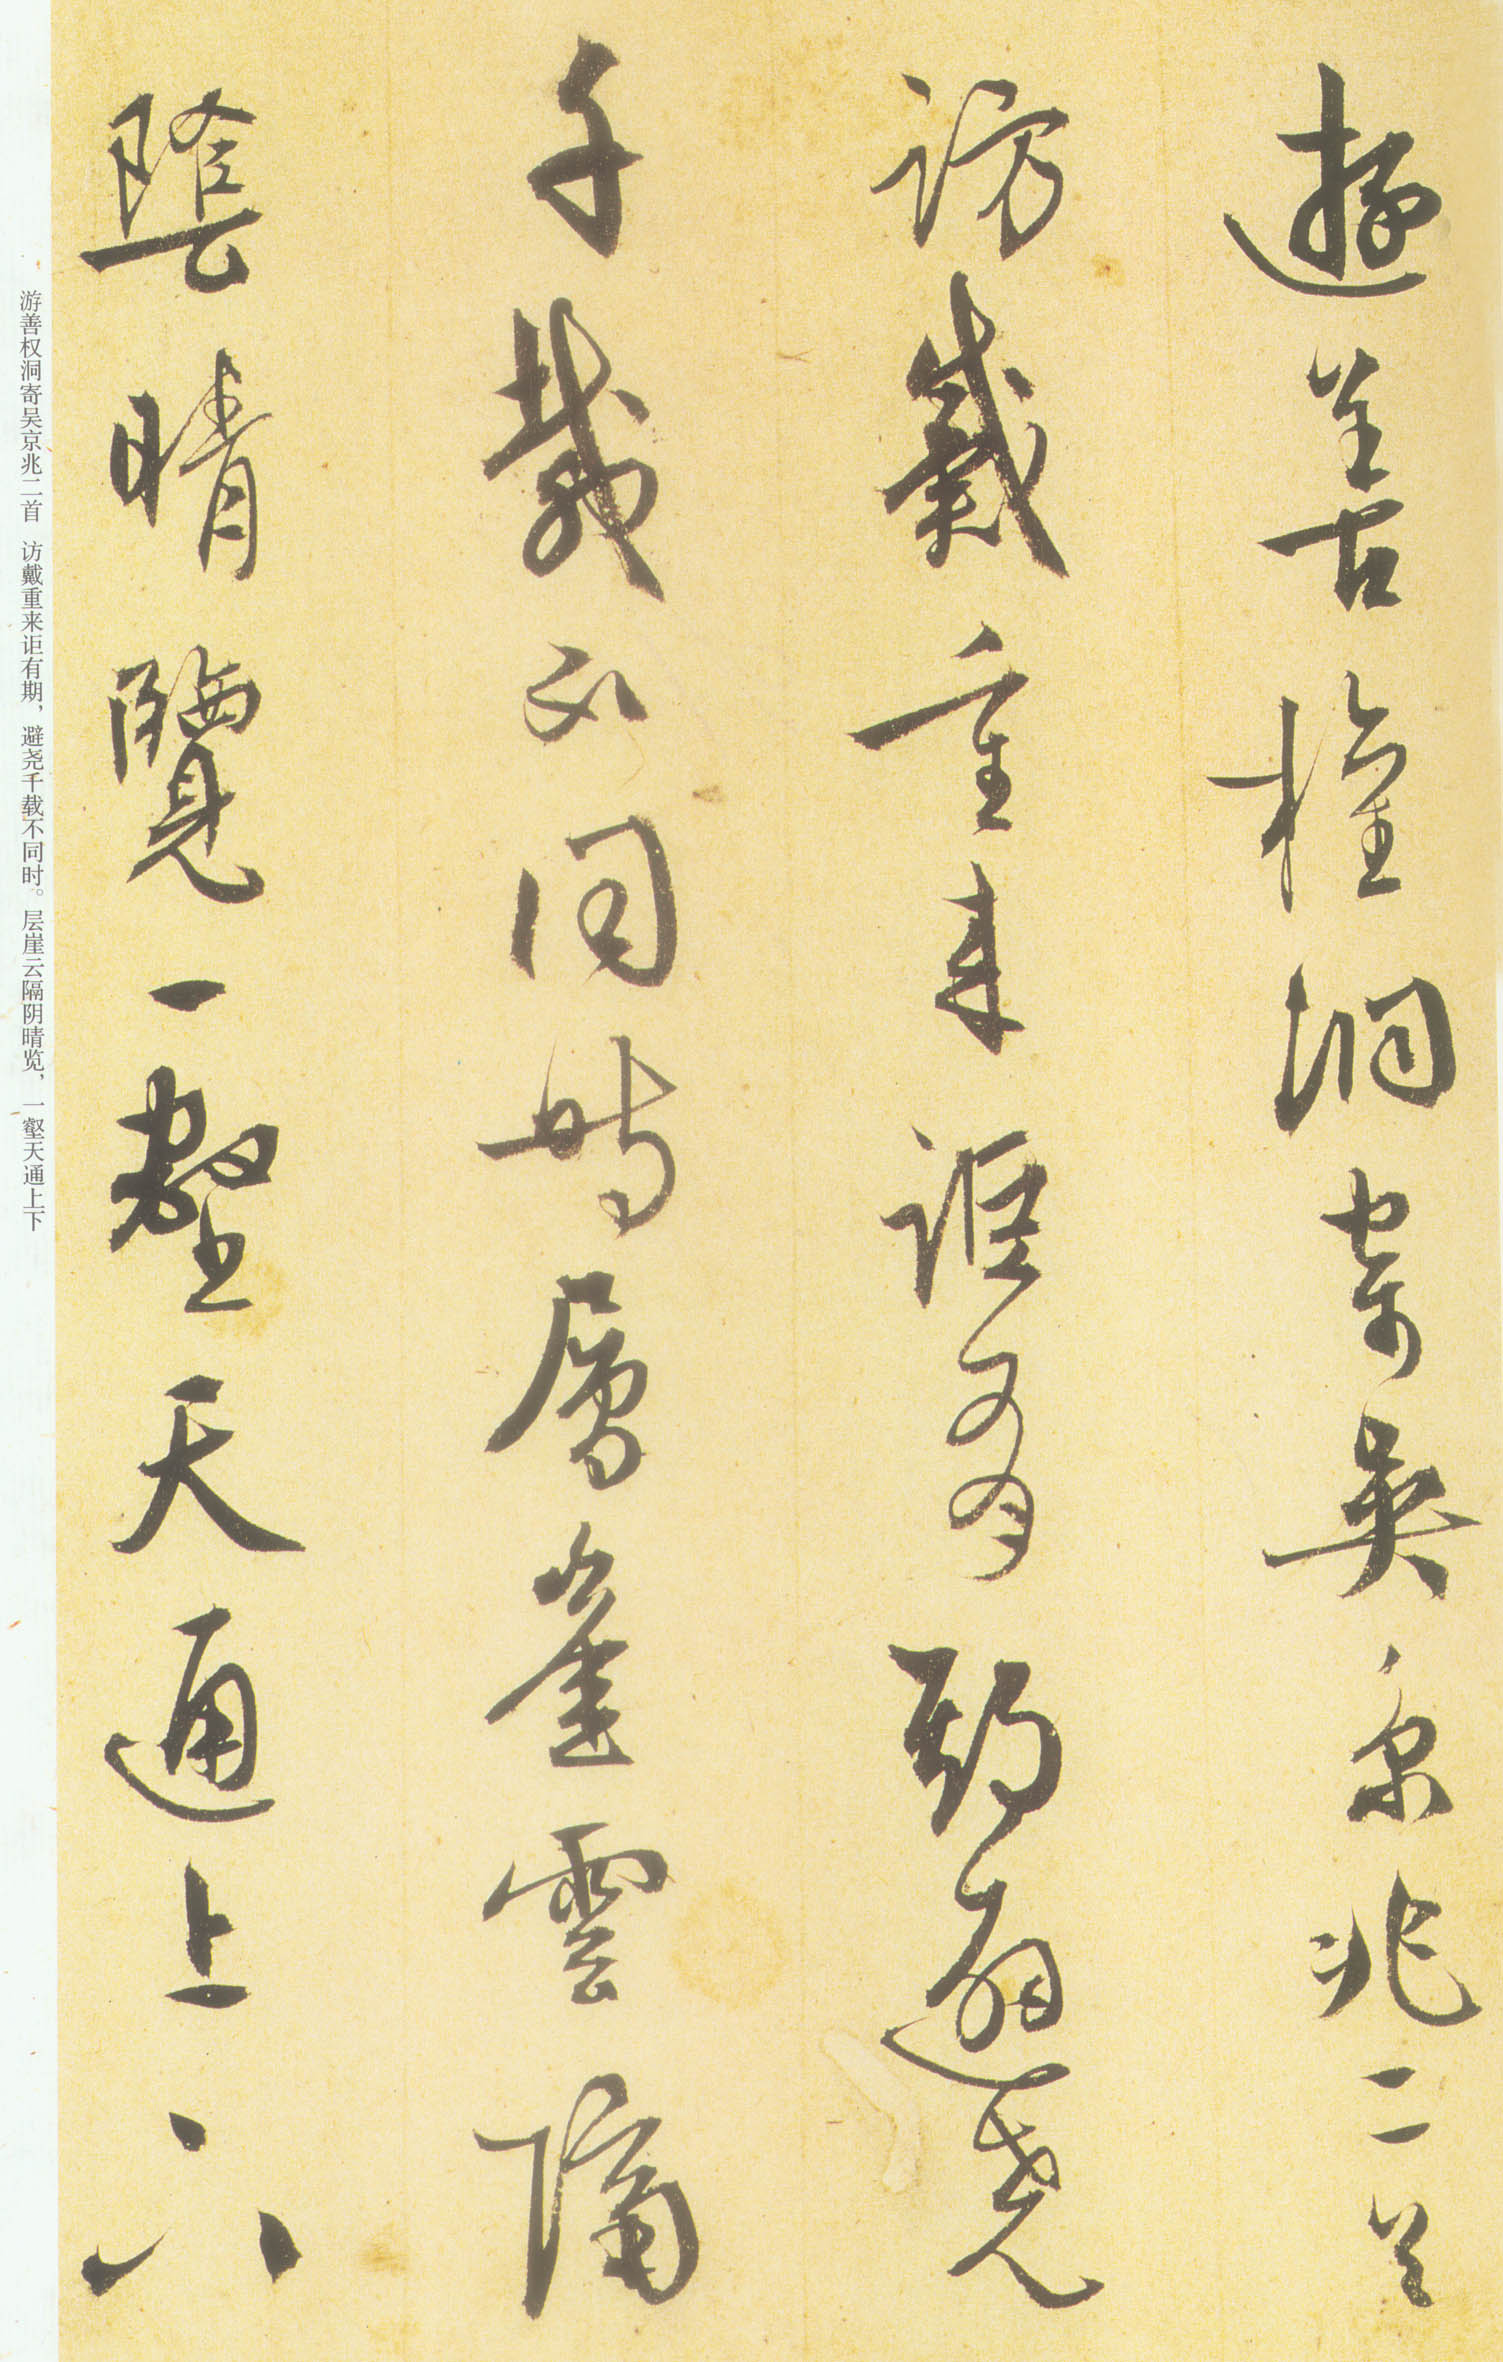 遊善權洞寄吳京兆二首
訪戴重來詎有期避堯
千載不同時層崖雲隔
陰晴覽一壑天通上下
游善权洞寄吴京兆二首　访戴重来讵有期，避尧千载不同时。层崖云隔阴晴览，一壑天通上下